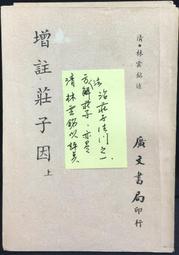 清・林雲銘述
增註莊子因 上
治莊子法門之一
清林雲銘以評莊
廣文書局
印行